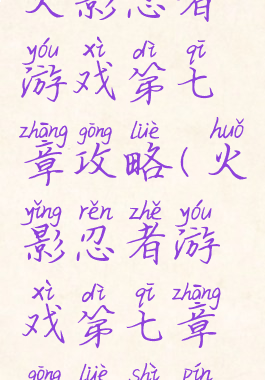 火影忍者
yóu xì dì qī
游戏第七
zhāng gōng lüè huǒ
章攻略(火
yǐng rěn zhě yóu
影忍者游
xì dì qī zhāng
戏第七章
gōng lüè shì pín